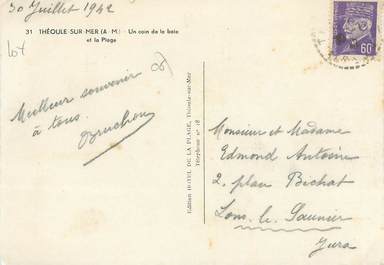 30 Juillet 1942
31 THÉOULE-SUR-MER (A.-M.) - Un coin de la baie
et la Plage
lot
06
60
Meilleur souvenir
à tous.
Bruchon
Edition HOTEL DE LA PLAGE, Théoule-sur-Mer
Téléphone n° 18
Monsieur et Madame
Edmond Antoine
2, place Bichat
Lons-le-Saunier
Jura